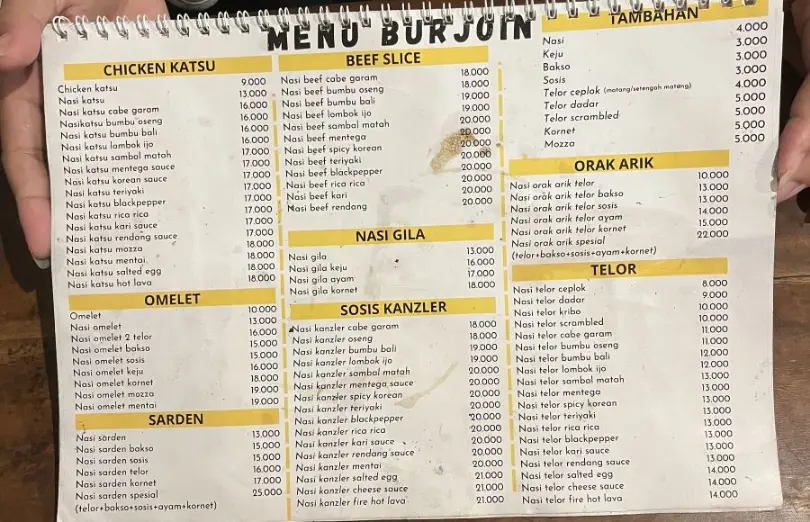 MENU BURJOIN
CHICKEN KATSU
Chicken katsu 9.000
Nasi katsu 13.000
Nasi katsu cabe garam 16.000
Nasikatsu bumbu oseng 16.000
Nasi katsu bumbu bali 16.000
Nasi katsu lombok ijo 16.000
Nasi katsu sambal matah 17.000
Nasi katsu mentega sauce 17.000
Nasi katsu korean sauce 17.000
Nasi katsu teriyaki 17.000
Nasi katsu blackpepper 17.000
Nasi katsu rica rica 17.000
Nasi katsu kari sauce 17.000
Nasi katsu rendang sauce 17.000
Nasi katsu mozza 18.000
Nasi katsu mentai 18.000
Nasi katsu salted egg 18.000
Nasi katsu hot lava 18.000
OMELET
Omelet 10.000
Nasi omelet 13.000
Nasi omelet 2 telor 16.000
Nasi omelet bakso 15.000
Nasi omelet sosis 15.000
Nasi omelet keju 16.000
Nasi omelet kornet 18.000
Nasi omelet mozza 19.000
Nasi omelet mentai 19.000
SARDEN
Nasi sarden 13.000
Nasi sarden bakso 15.000
Nasi sarden sosis 15.000
Nasi sarden telor 16.000
Nasi sarden kornet 17.000
Nasi sarden spesial 25.000
(telor+bakso+sosis+ayam+kornet)
BEEF SLICE
Nasi beef cabe garam 18.000
Nasi beef bumbu oseng 18.000
Nasi beef bumbu bali 19.000
Nasi beef lombok ijo 19.000
Nasi beef sambal matah 20.000
Nasi beef mentega 20.000
Nasi beef spicy korean 20.000
Nasi beef teriyaki 20.000
Nasi beef blackpepper 20.000
Nasi beef rica rica 20.000
Nasi beef kari 20.000
Nasi beef rendang 20.000
NASI GILA
Nasi gila 13.000
Nasi gila keju 16.000
Nasi gila ayam 17.000
Nasi gila kornet 18.000
SOSIS KANZLER
Nasi kanzler cabe garam 18.000
Nasi kanzler oseng 18.000
Nasi kanzler bumbu bali 19.000
Nasi kanzler lombok ijo 19.000
Nasi kanzler sambal matah 20.000
Nasi kanzler mentega sauce 20.000
Nasi kanzler spicy korean 20.000
Nasi kanzler teriyaki 20.000
Nasi kanzler blackpepper 20.000
Nasi kanzler rica rica 20.000
Nasi kanzler kari sauce 20.000
Nasi kanzler rendang sauce 20.000
Nasi kanzler mentai 20.000
Nasi kanzler salted egg 21.000
Nasi kanzler cheese sauce 21.000
Nasi kanzler fire hot lava 21.000
TAMBAHAN
Nasi 4.000
Keju 3.000
Bakso 3.000
Sosis 3.000
Telor ceplok (matang/setengah matang) 4.000
Telor dadar 5.000
Telor scrambled 5.000
Kornet 5.000
Mozza 5.000
ORAK ARIK
Nasi orak arik telor 10.000
Nasi orak arik telor bakso 13.000
Nasi orak arik telor sosis 13.000
Nasi orak arik telor ayam 14.000
Nasi orak arik telor kornet 15.000
Nasi orak arik spesial 22.000
(telor+bakso+sosis+ayam+kornet)
TELOR
Nasi telor ceplok 8.000
Nasi telor dadar 9.000
Nasi telor kribo 10.000
Nasi telor scrambled 10.000
Nasi telor cabe garam 11.000
Nasi telor bumbu oseng 11.000
Nasi telor bumbu bali 12.000
Nasi telor lombok ijo 12.000
Nasi telor sambal matah 13.000
Nasi telor mentega 13.000
Nasi telor spicy korean 13.000
Nasi telor teriyaki 13.000
Nasi telor rica rica 13.000
Nasi telor blackpepper 13.000
Nasi telor kari sauce 13.000
Nasi telor rendang sauce 13.000
Nasi telor salted egg 14.000
Nasi telor cheese sauce 14.000
Nasi telor fire hot lava 14.000